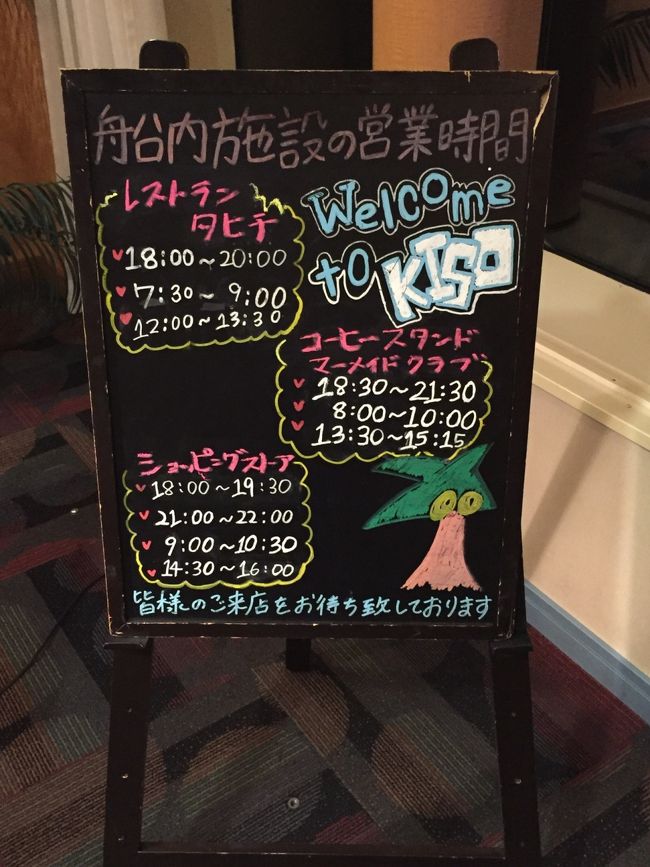 船内施設の営業時間
レストラン
タヒチ
18:00～20:00
7:30～9:00
12:00～13:30
Welcome
to KISO
コーヒースタンド
マーメイドクラブ
18:30～21:30
8:00～10:00
13:30～15:15
ショッピングストア
18:00～19:30
21:00～22:00
9:00～10:30
14:30～16:00
皆様のご来店をお待ち致しております